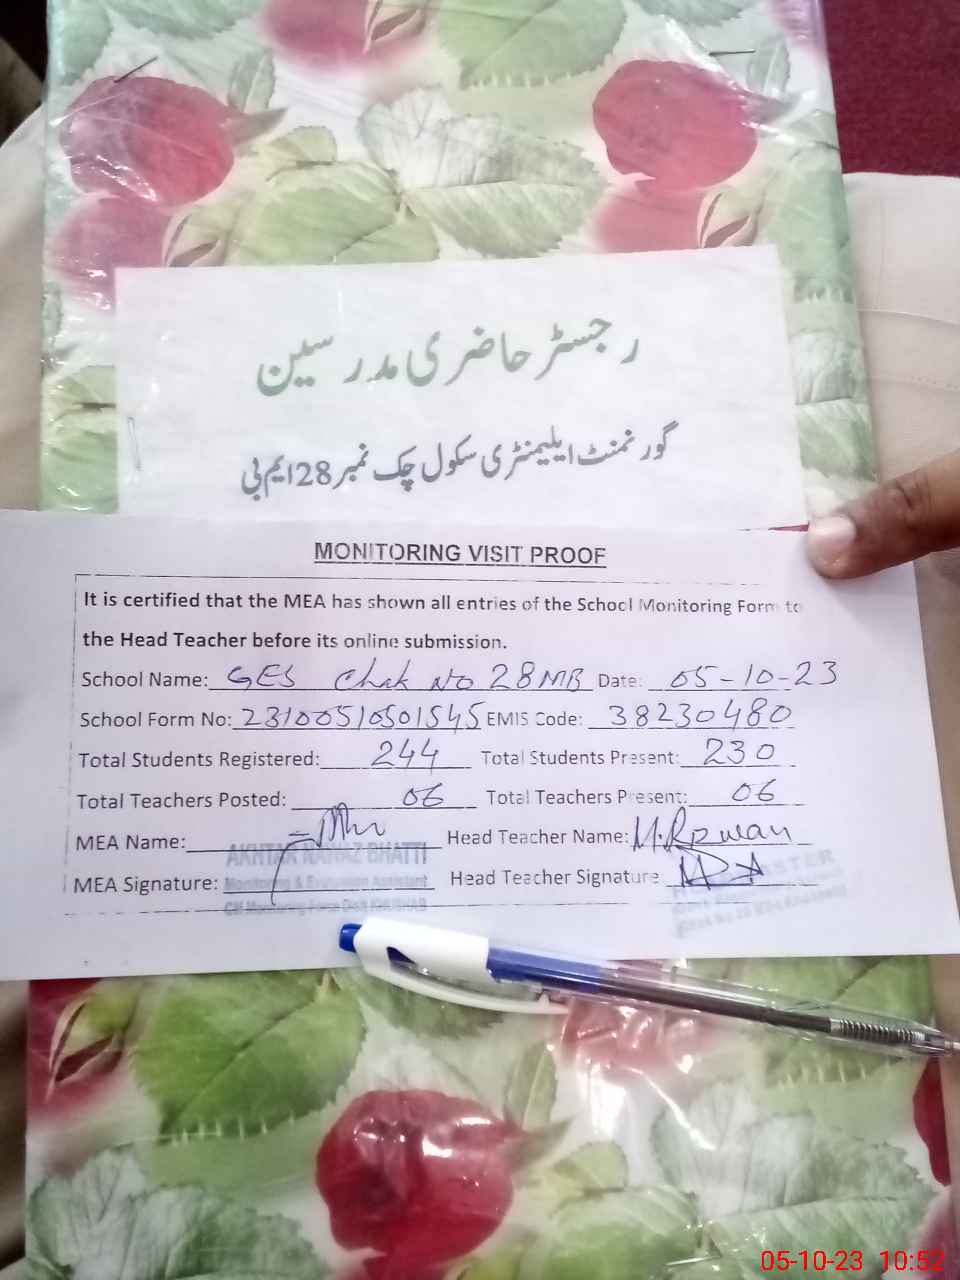 رجسٹر حاضری مدرسین
گورنمنٹ ایلیمنٹری سکول چک نمبر 28 ایم بی
MONITORING VISIT PROOF
It is certified that the MEA has shown all entries of the School Monitoring Form to
the Head Teacher before its online submission.
School Name: GES Chak No 28MB Date: 05-10-23
School Form No: 23100510501545 EMIS Code: 38230480
Total Students Registered: 244 Total Students Present: 230
Total Teachers Posted: 06 Total Teachers Present: 06
MEA Name: Head Teacher Name: M.Rizwan
AKHTAR NAWAZ BHATTI
MEA Signature: Head Teacher Signature
Monitoring & Evaluation Assistant
CM Monitoring Force Distt KHUSHAB
05-10-23 10:52